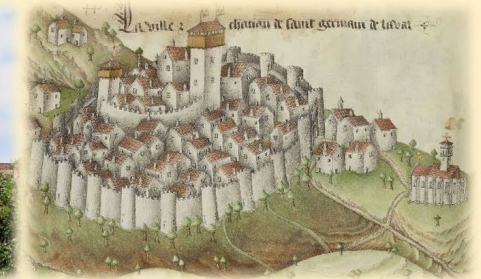 La ville & chastau de saint germain de laval